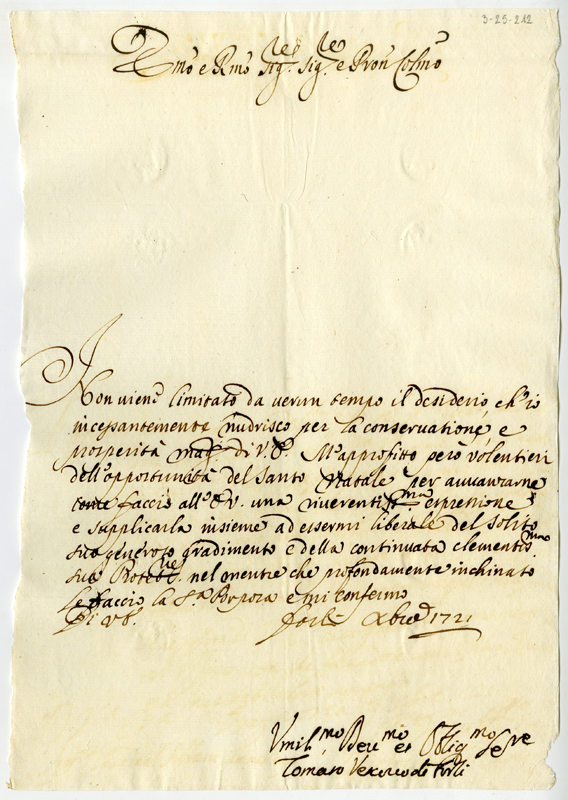 3-25-212
Emo e Rmo Sig.re Sig.re e Pron Colmo
Non viene limitato da verun tempo il desiderio, ch'io
incessantemente nudrisco per la conservatione, e
prosperità magg. di V. E. M'approfitto però volentieri
dell'opportunità del Santo Natale per avvanzarne
come faccio all'E.V. una riverentissma espressione
e supplicarla insieme ad essermi liberale del solito
suo generoso gradimento e della continuata clementissma
sua Protene nel mentre che profondamente inchinato
le baccio la S.a Porpora e mi confermo
Di V.E. Forlì Xbre 1721
Vmil.mo Deu.mo et Oblig.mo Se.re
Tomaso Vescovo di Forlì